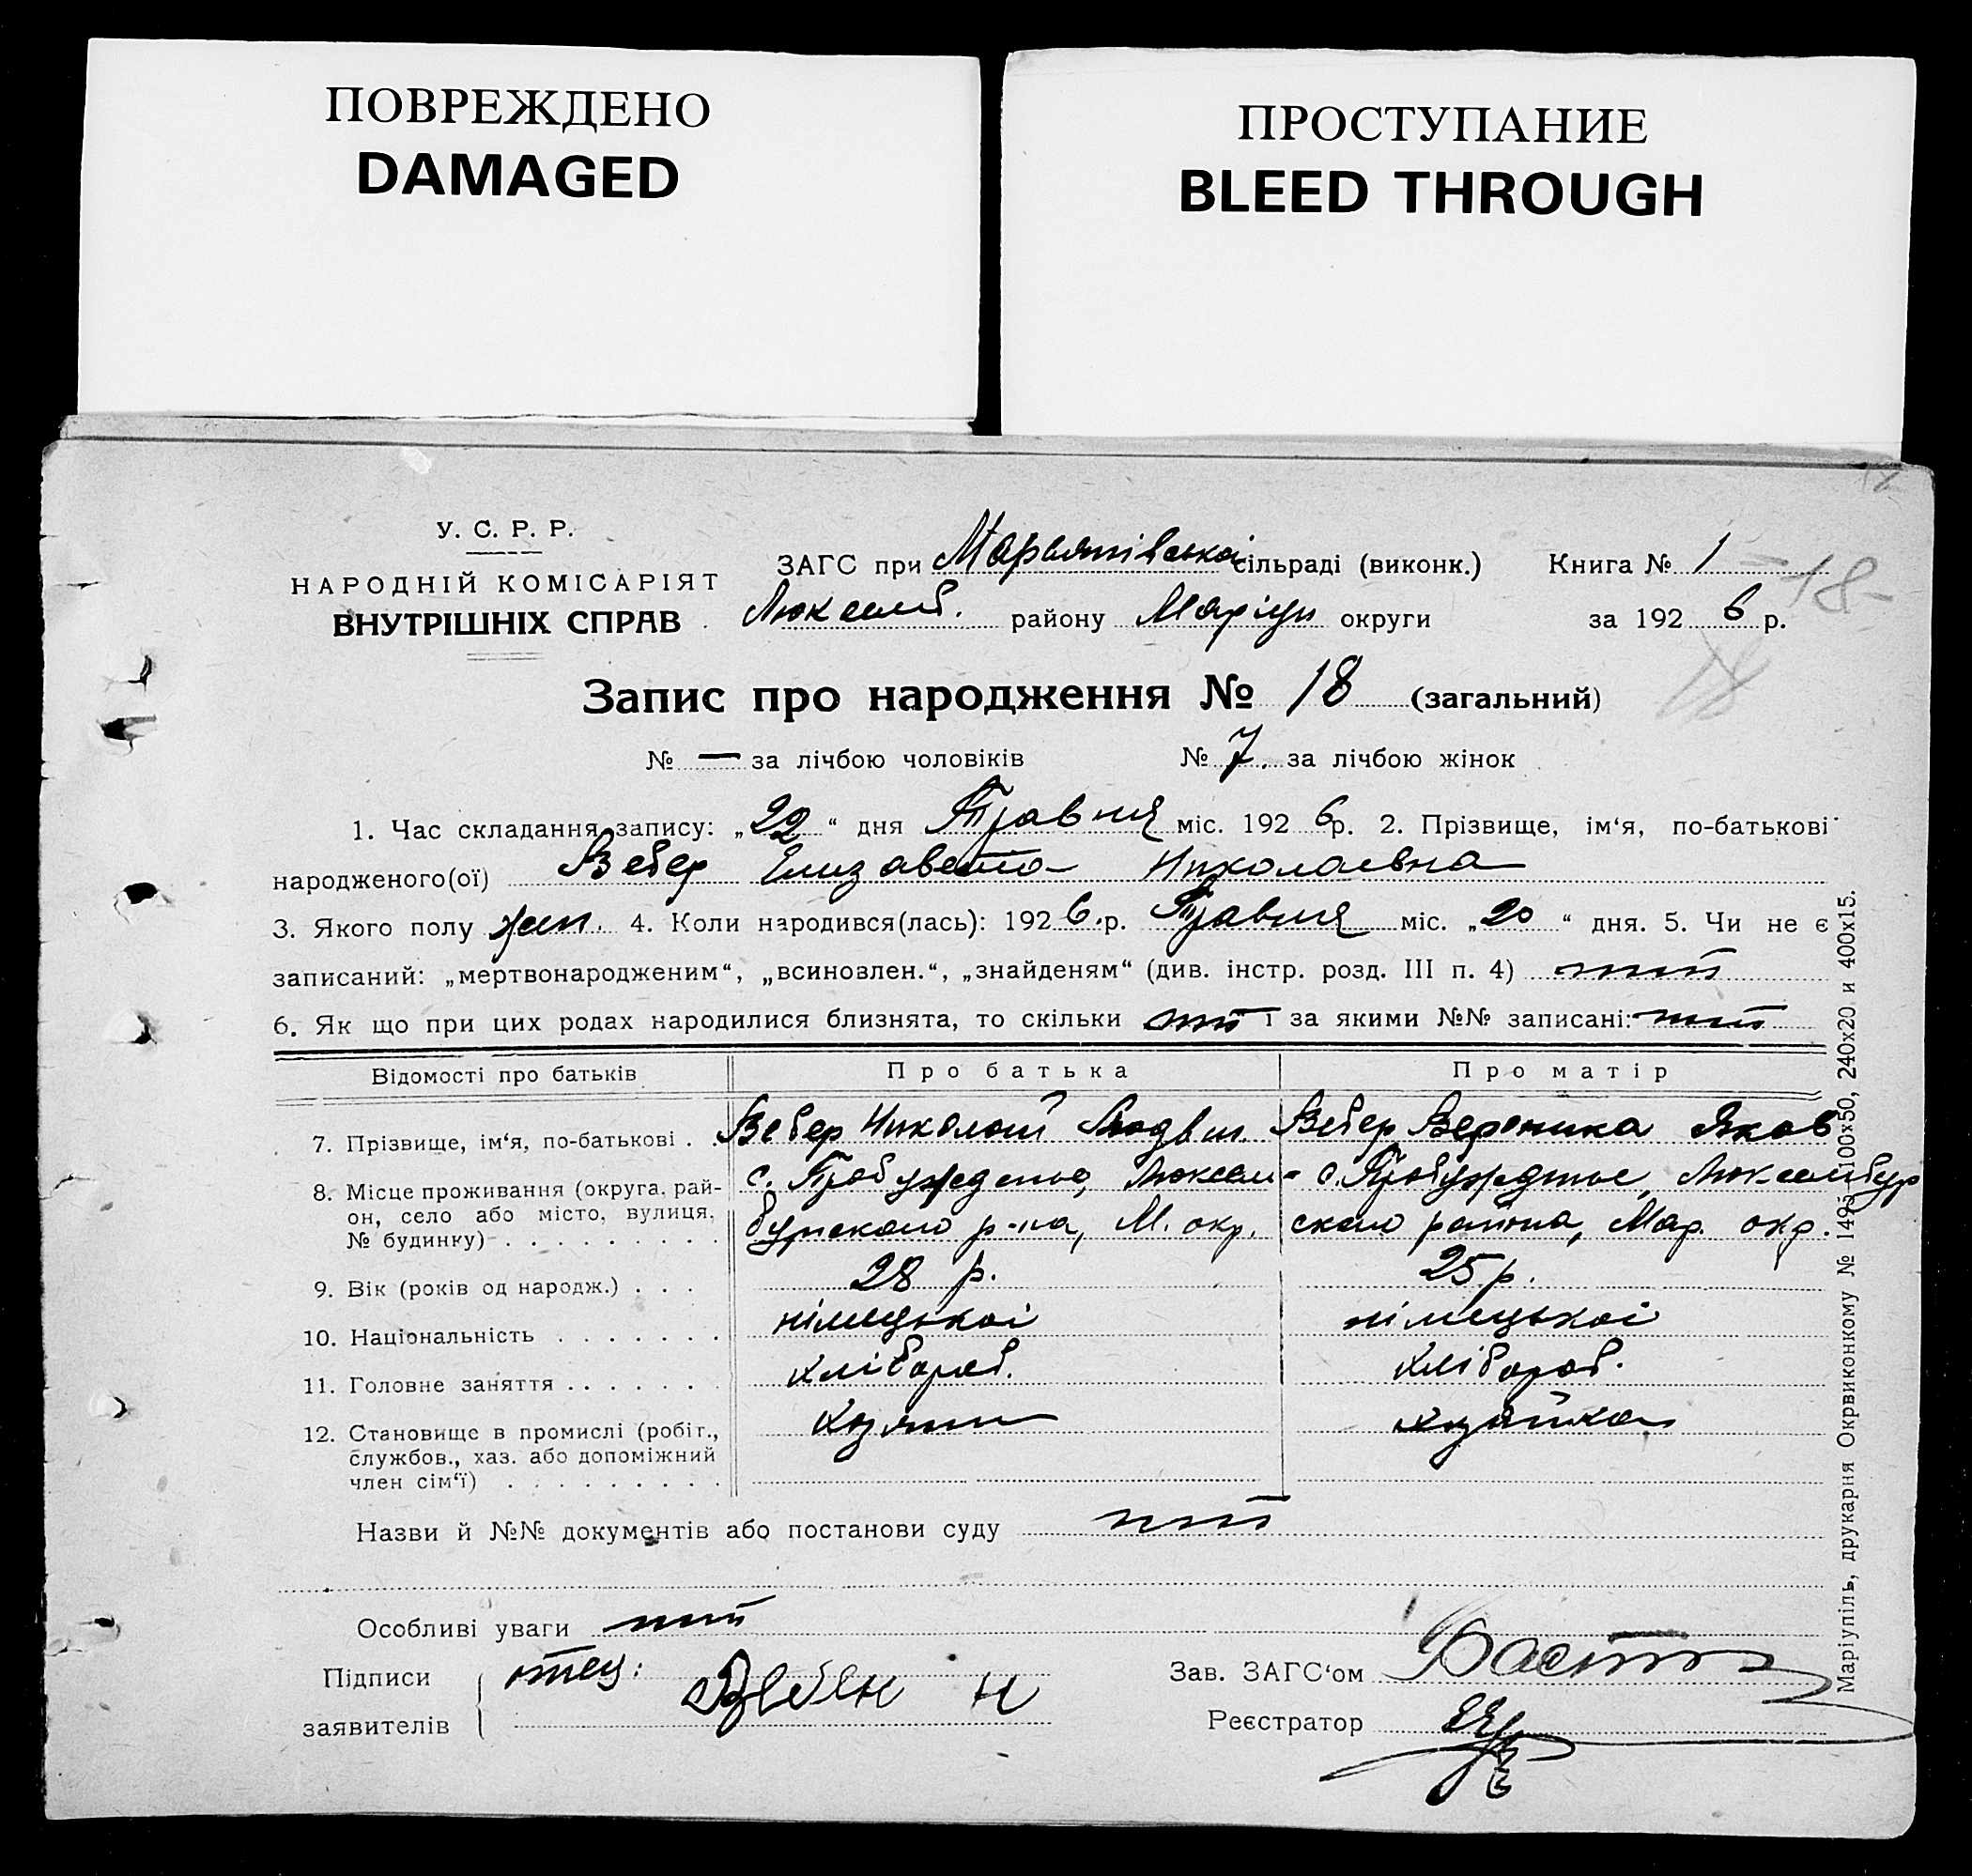 ПОВРЕЖДЕНО
DAMAGED
ПРОСТУПАНИЕ
BLEED THROUGH
У. С. Р. Р.
НАРОДНІЙ КОМІСАРІЯТ
ВНУТРІШНІХ СПРАВ
ЗАГС при Марьянівської сільраді (виконк.) Книга № 1 -18-
Люксемб. району Маріуп округи за 192 6 р.
18
Запис про народження № 18 (загальний)
№ — за лічбою чоловіків № 7. за лічбою жінок
1. Час складання запису: „22“ дня Травня міс. 192 6 р. 2. Прізвище, ім‘я, по-батькові
народженого(ої) Вебер Елизавета Николаевна
3. Якого полу жен. 4. Коли народився(лась): 192 6. р. Травня міс. „20“ дня. 5. Чи не є
записаний: „мертвонародженим“, „всиновлен.“, „знайденям“ (див. інстр. розд. III п. 4) ні
6. Як що при цих родах народилися близнята, то скільки ні і за якими №№ записані: ні
Відомості про батьків Про батька Про матір
7. Прізвище, ім‘я, по-батькові . . Вебер Николай Людви. Вебер Вероника Яков
8. Місце проживання (округа, рай- с. Пробужденье, Люксем- с. Пробужденье, Люксембур
он, село або місто, вулиця,
№ будинку) . . . . . . . . . бургского р-на, М. окр. ского района, Мар. окр.
9. Вік (років од народж.) . . . 28 р. 25 р.
10. Національність . . . . . . . німецької німецької
11. Головне заняття . . . . . . . хлібороб. хлібороб.
12. Становище в промислі (робіт., хозяин хозяйка
службов., хаз. або допоміжний
член сім‘ї) . . . . . . . . .
Назви й №№ документів або постанови суду ні
Особливі уваги ні
Підписи
заявителів
отец:
Зав. ЗАГС‘ом
Реєстратор
Маріупіль, друкарня Окрвиконкому № 1495—100х50, 240х20 и 400х15.